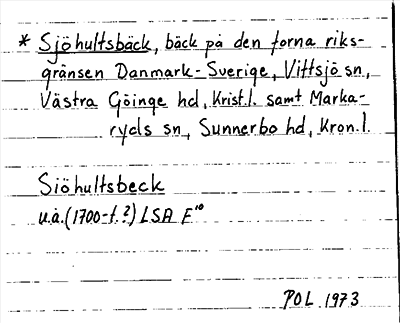 * Sjöhultsbäck, bäck på den forna riks-
gränsen Danmark-Sverige, Vittsjö sn,
Västra Göinge hd, Krist.l. samt Marka-
ryds sn, Sunnerbo hd, Kron.l.
Siöhultsbeck
u.å. (1700-t.?) LSA F¹⁰
POL 1973